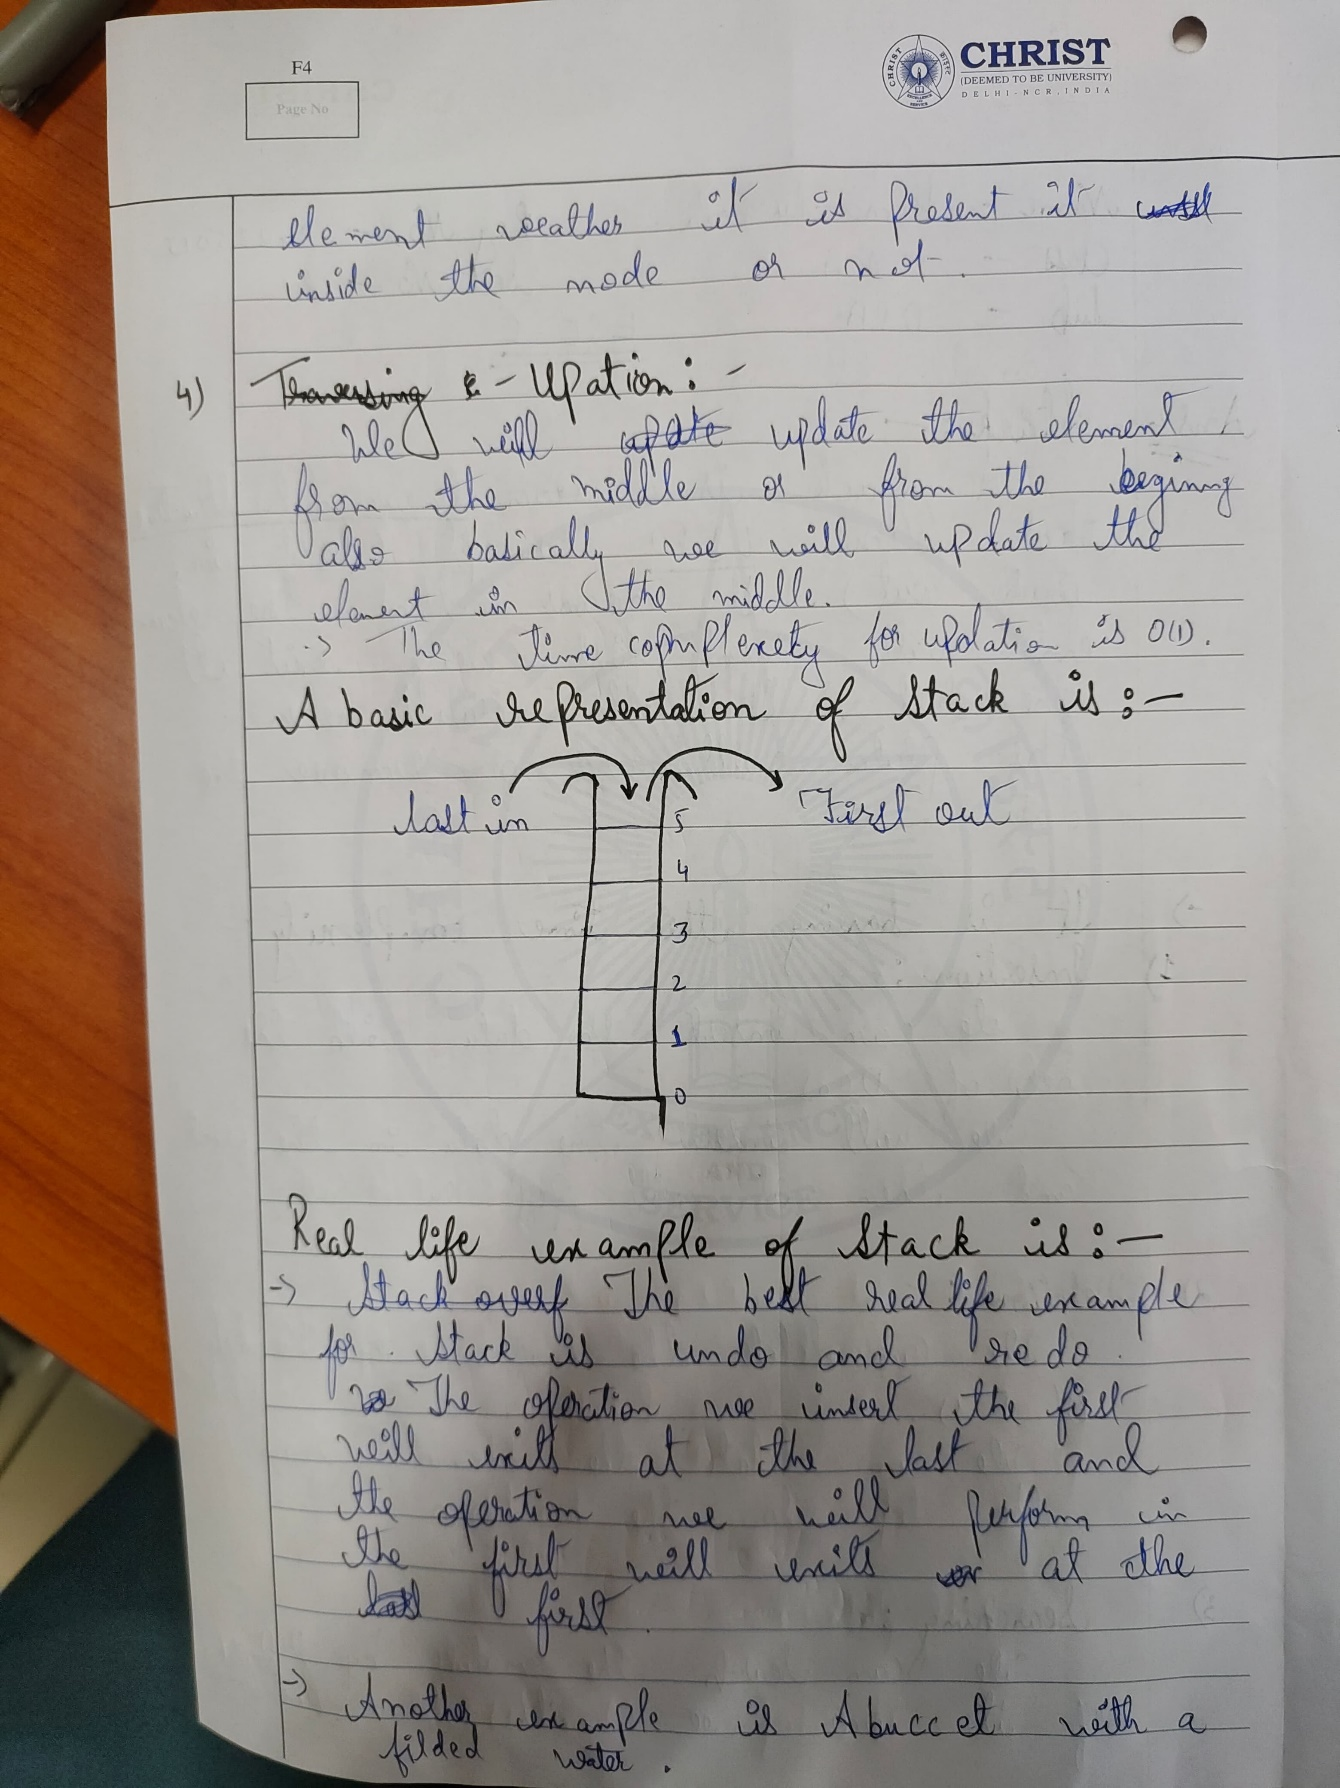 F4
Page No
CHRIST
(DEEMED TO BE UNIVERSITY)
DELHI - NCR, INDIA
element weather it is present it
inside the node or not.
4) Traversing & - Upation :-
We will update update the element
from the middle or from the begining
also basically we will update the
element in the middle.
-> The time complexety for updation is O(1).
A basic representation of stack is :-
last in
First out
5
4
3
2
1
0
Real life example of stack is :-
-> Stack overf The best real life example
for stack is undo and redo.
The operation we insert the first
will exits at the last and
the operation we will perform in
the first will exits at the
last first.
-> Another example is A buccet with a
filded water.